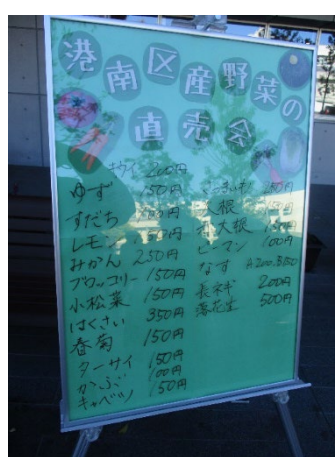 港南区産野菜の
直売会
キウイ 200円
ゆず 150円
すだち
レモン
みかん 250円
ブロッコリー 150円
小松菜 150円
はくさい 350円
春菊 150円
ターサイ 150円
かぶ 100円
キャベツ 150円
250円
大根 150円
大根 150円
ピーマン 100円
なす A200.B150
長ネギ 200円
落花生 500円